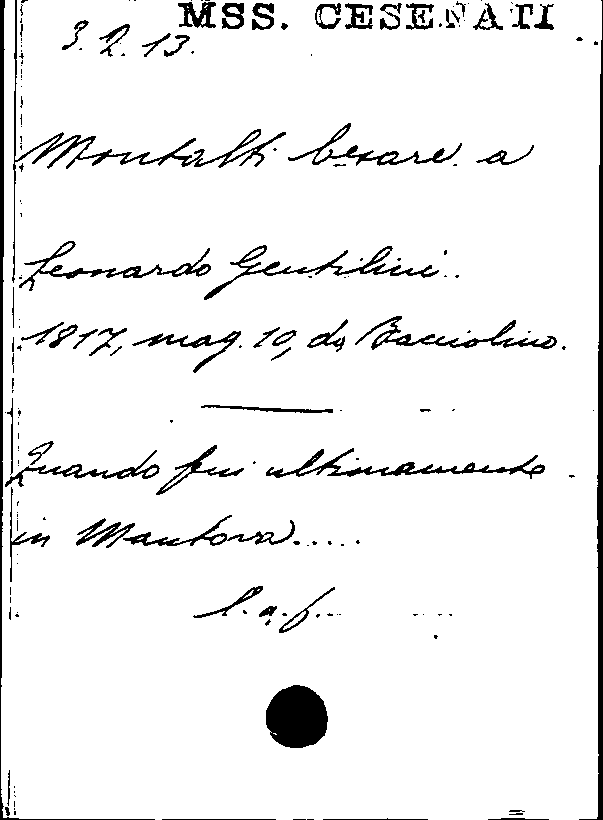 MSS. CESENATI
3.2.13.
Montalti Cesare a
Leonardo Gentilini.
1817, mag. 10, da Bacciolino.
Quando fui ultimamente
in Mantova.....
l. a. f.